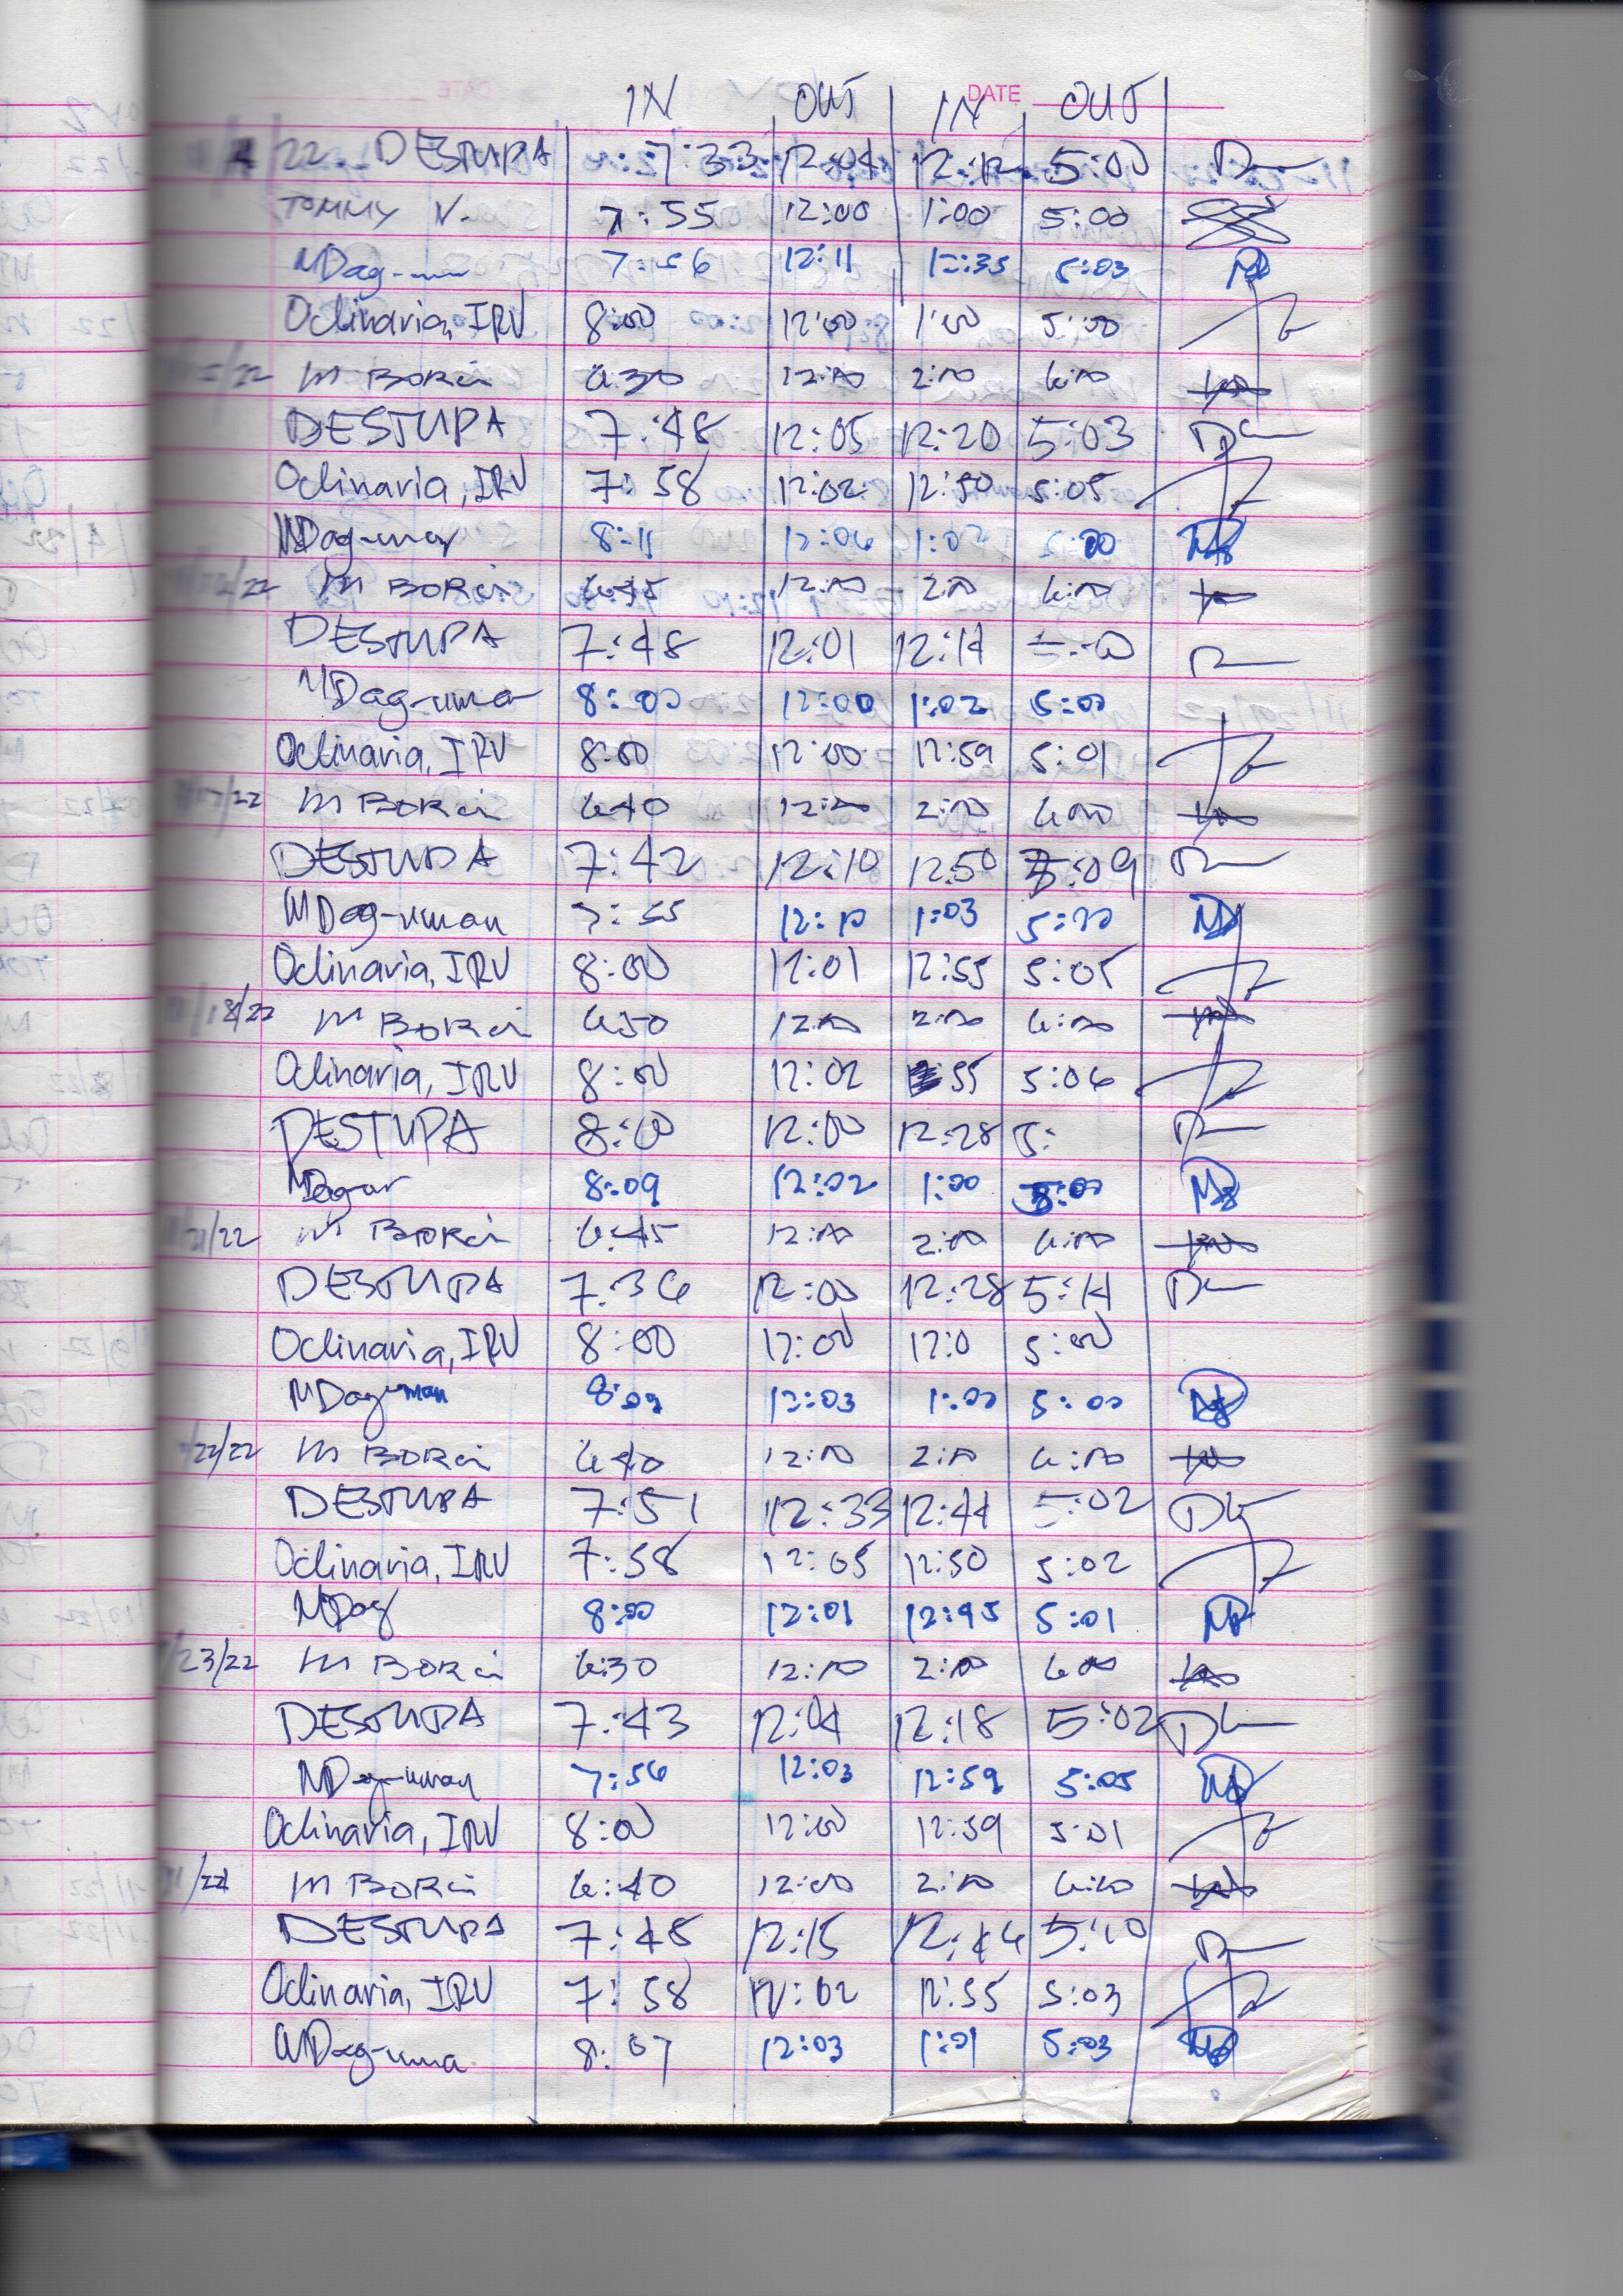 IN OUT IN OUT
DATE
22 DESTUPA 7:33 12:04 12:12 5:00
TOMMY N. 7:55 12:00 1:00 5:00
MDag 7:56 12:11 12:35 5:03
Oclinaria, IRV 8:00 12:00 1:00 5:00
/22 M BORCi 6:30 12:00 2:00 6:00
DESTUPA 7:48 12:05 12:20 5:03
Oclinaria, IRV 7:58 12:02 12:50 5:05
MDag-uman 8:11 12:06 1:02 5:00
/22 M BORCi 6:45 12:00 2:00 6:00
DESTUPA 7:48 12:01 12:14
MDag-uman 8:00 12:00 1:02 5:00
Oclinaria, IRV 8:00 12:00 12:59 5:01
17/22 M BORCi 6:40 12:00 2:00 6:00
DESTUPA 7:42 12:10 12:50 5:09
MDag-uman 7:55 12:10 1:03 5:00
Oclinaria, IRV 8:00 12:01 12:55 5:05
/18/22 M BORCi 6:50 12:00 2:00 6:00
Oclinaria, IRV 8:00 12:02 55 5:06
DESTUPA 8:00 12:00 12:28 5:
MDag 8:09 12:02 1:00 5:00
21/22 M BORCi 6:45 12:00 2:00 6:00
DESTUPA 7:36 12:00 12:28 5:14
Oclinaria, IRV 8:00 12:00 12:0 5:00
MDag-uman 8:09 12:03 1:00 5:00
/22/22 M BORCi 6:40 12:00 2:00 6:00
DESTUPA 7:51 12:33 12:44 5:02
Oclinaria, IRV 7:58 12:05 12:50 5:02
MDag 8:00 12:01 12:45 5:01
/23/22 M BORCi 6:30 12:00 2:00 6:00
DESTUPA 7:43 12:04 12:18 5:02
MDag-uman 7:56 12:03 12:59 5:05
Oclinaria, IRV 8:00 12:00 12:59 5:01
/22 M BORCi 6:40 12:00 2:00 6:00
DESTUPA 7:48 12:15 12:46 5:10
Oclinaria, IRV 7:58 12:02 12:55 5:03
MDag-uma 8:07 12:03 1:01 5:03